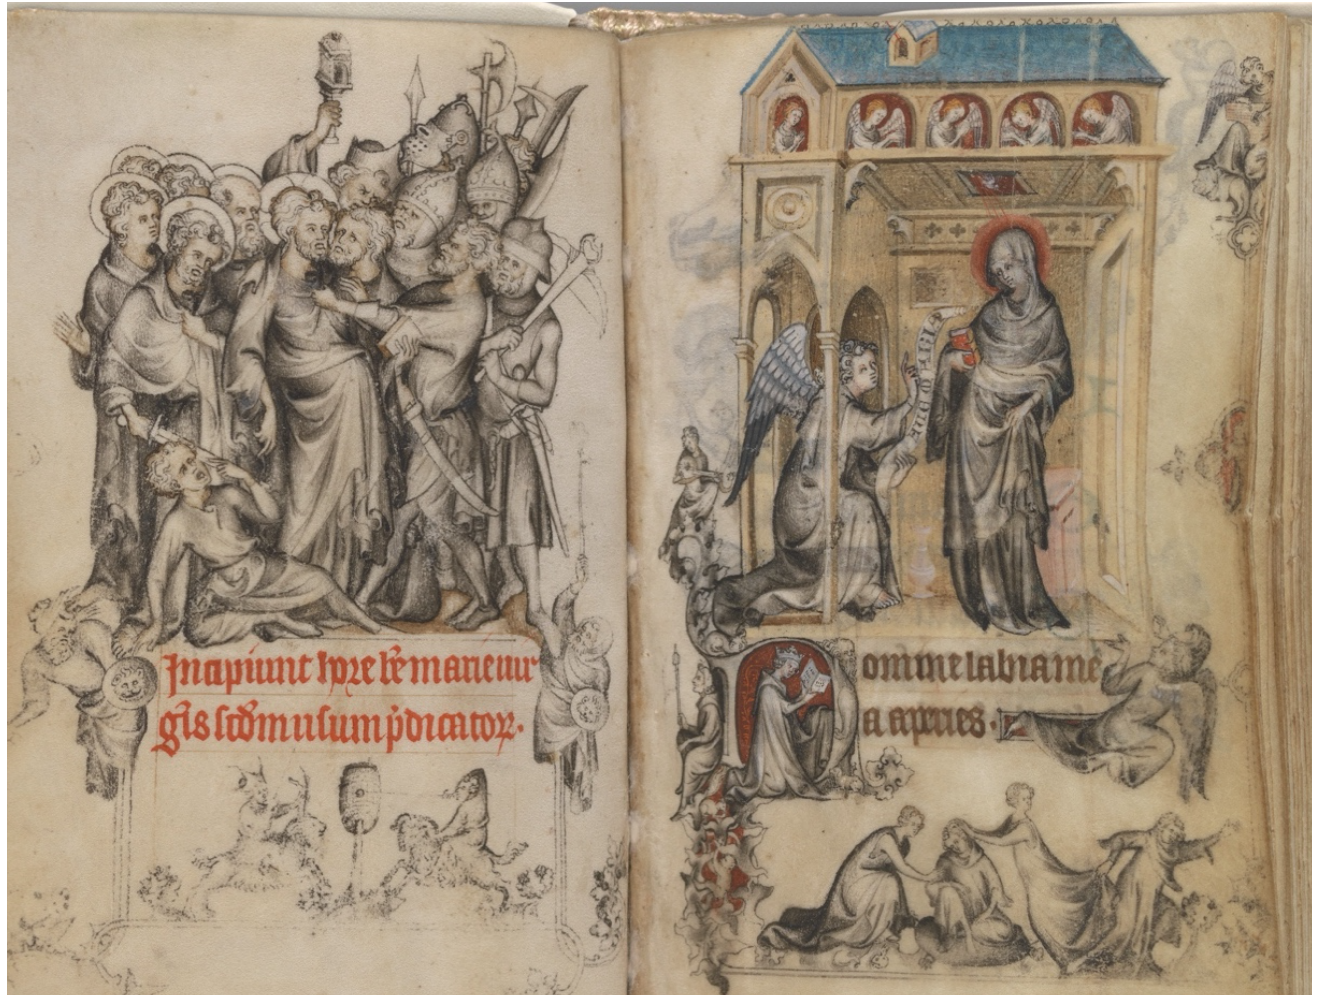 Incipiunt hore be marie uir
gis scdm usum pdicator.
omine labia me
a aperies.